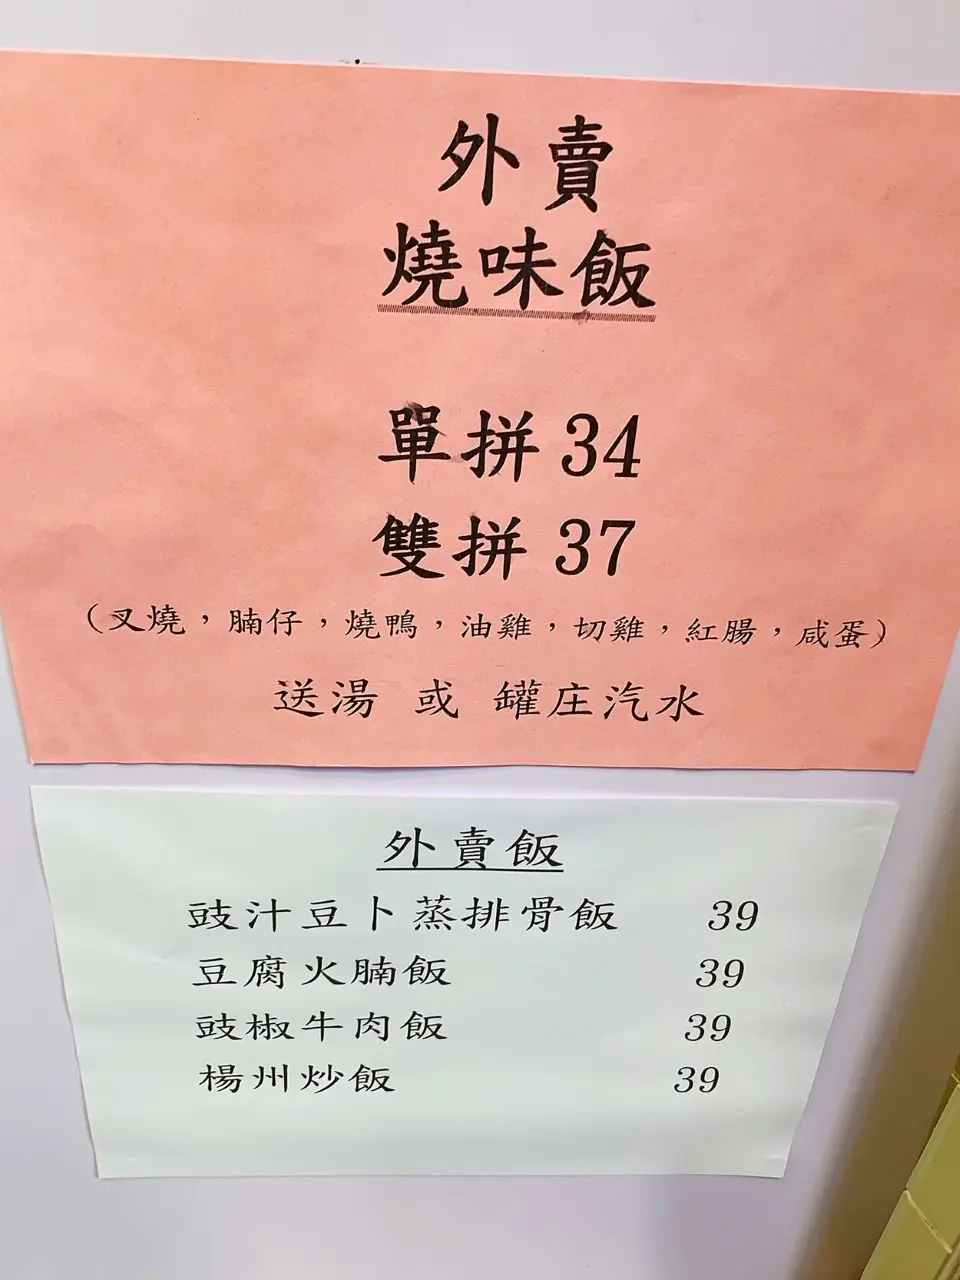 外賣
燒味飯
單拼 34
雙拼 37
（叉燒，腩仔，燒鴨，油雞，切雞，紅腸，咸蛋）
送湯 或 罐庄汽水
外賣飯
豉汁豆卜蒸排骨飯 39
豆腐火腩飯 39
豉椒牛肉飯 39
楊州炒飯 39